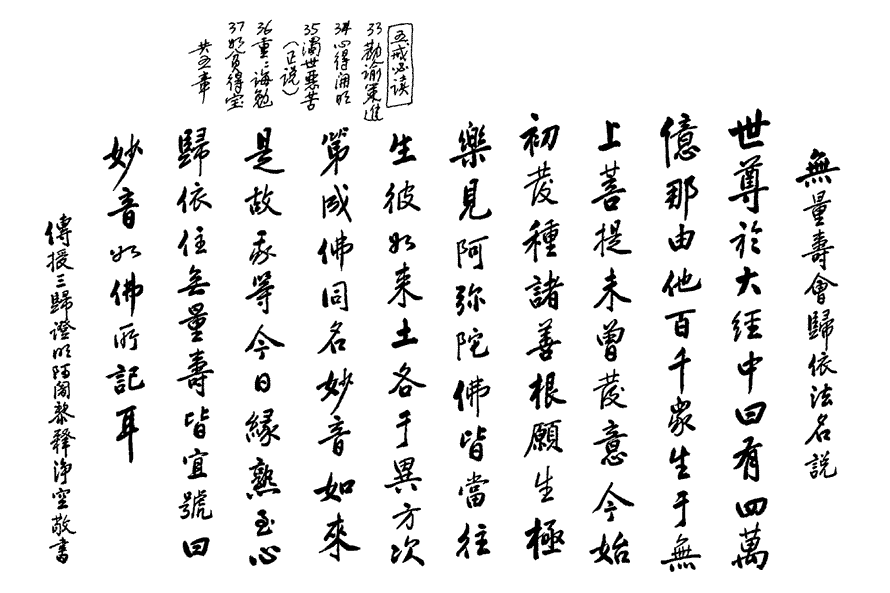 無量壽會歸依法名說
世尊於大經中曰有四萬
億那由他百千眾生于無
上菩提未曾發意今始
初發種諸善根願生極
樂見阿弥陀佛皆當往
生彼如来土各于異方次
第成佛同名妙音如來
是故我等今日緣熟至心
歸依住無量壽皆宜號曰
妙音如佛所記耳
傳授三歸證明阿闍黎釋淨空敬書
五戒必读
33勸諭策進
34心得開明
35濁世惡苦
（正説）
36重重誨勉
37如貧得宝
共五章